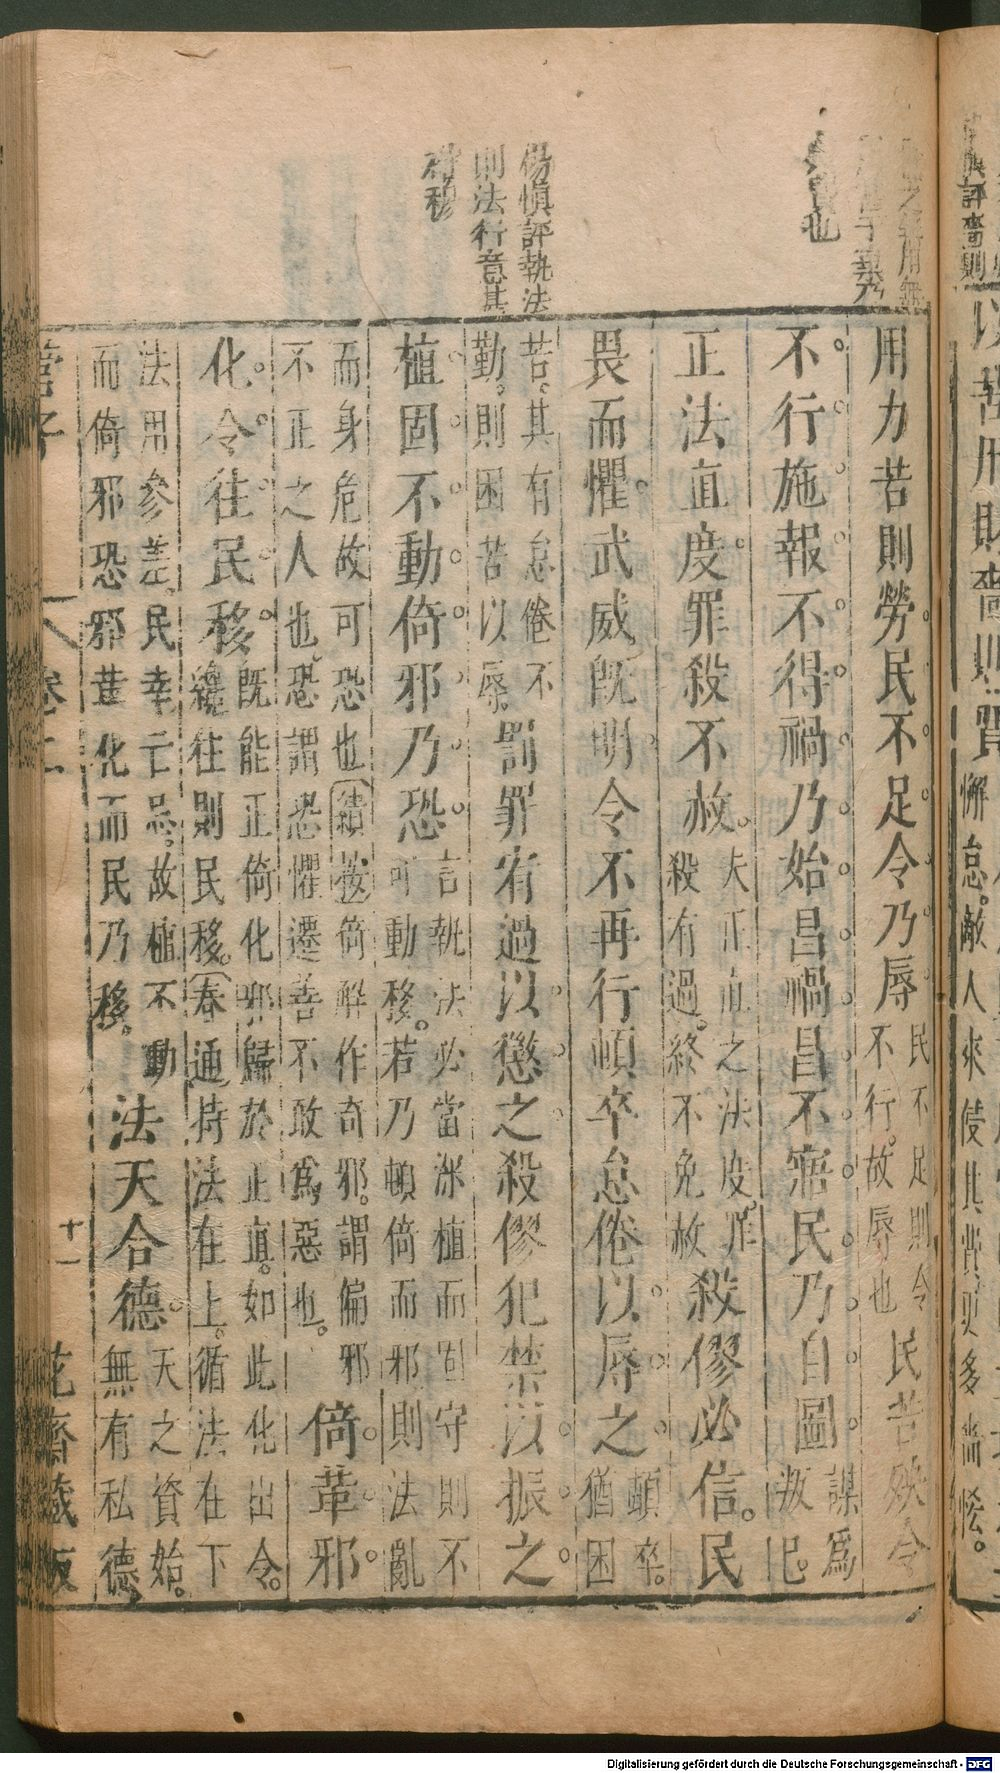 楊慎評執法
則法行意甚
用力苦則勞民不足令乃辱民不足則令不行故辱也民苦殃令
不行施報不得禍乃始昌禍昌不寤民乃自圖謀為叛也
正法直度罪殺不赦夫正直之法度罪殺有過終不免赦殺僇必信民
畏而懼武威既明令不再行頓卒怠倦以辱之頓卒猶困
苦其有怠倦不勤則困苦以辱罰罪宥過以懲之殺僇犯禁以振之
植固不動倚邪乃恐言執法必當深植而固守則不可動移若乃頓倚而邪則法亂
而身危故可恐也續按倚解作奇邪謂偏邪不正之人也恐謂恐懼遷善不敢為惡也倚革邪
化令往民移既能正倚化邪歸於正直如此化出令纔往則民移春通持法在上循法在下
法用參差民幸亡忌故植不動而倚邪恐邪革化而民乃移法天合德天之資始無有私德
管子 卷二 十一 花齋藏板
Digitalisierung gefördert durch die Deutsche Forschungsgemeinschaft - DFG